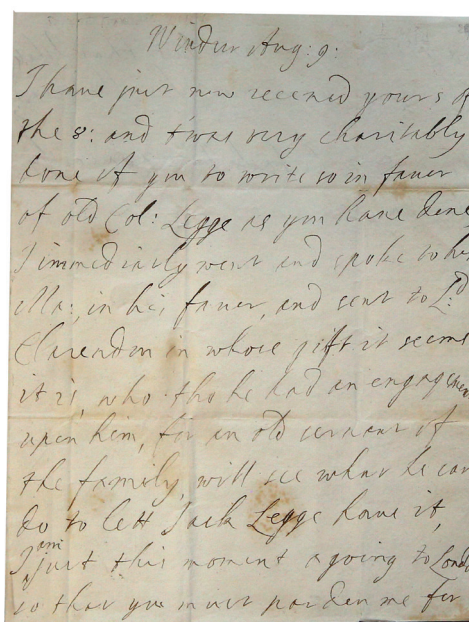 Windsr Aug: 9:
I have just now receaved yours of
the 8: and t'was very charitably
done of you to write so in faver
of old Col: Legge as you have done
I immediatly went and spoke to his
Ma: in his faver, and sent to Ld
Clarendon in whose gift it seems
it is, who tho he had an engagement
upon him, for an old servant of
the family, will see what he can
do to lett Jack Legge have it,
I am just this moment a going to Lond
so that you must pardon me for